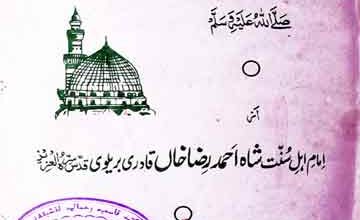 صَلَّی اللہُ عَلَیْہِ وَسَلَّم
از
امام اہلِ سُنّت شاہ احمد رضا خاں قادری بریلوی قدس سرہ العزیز